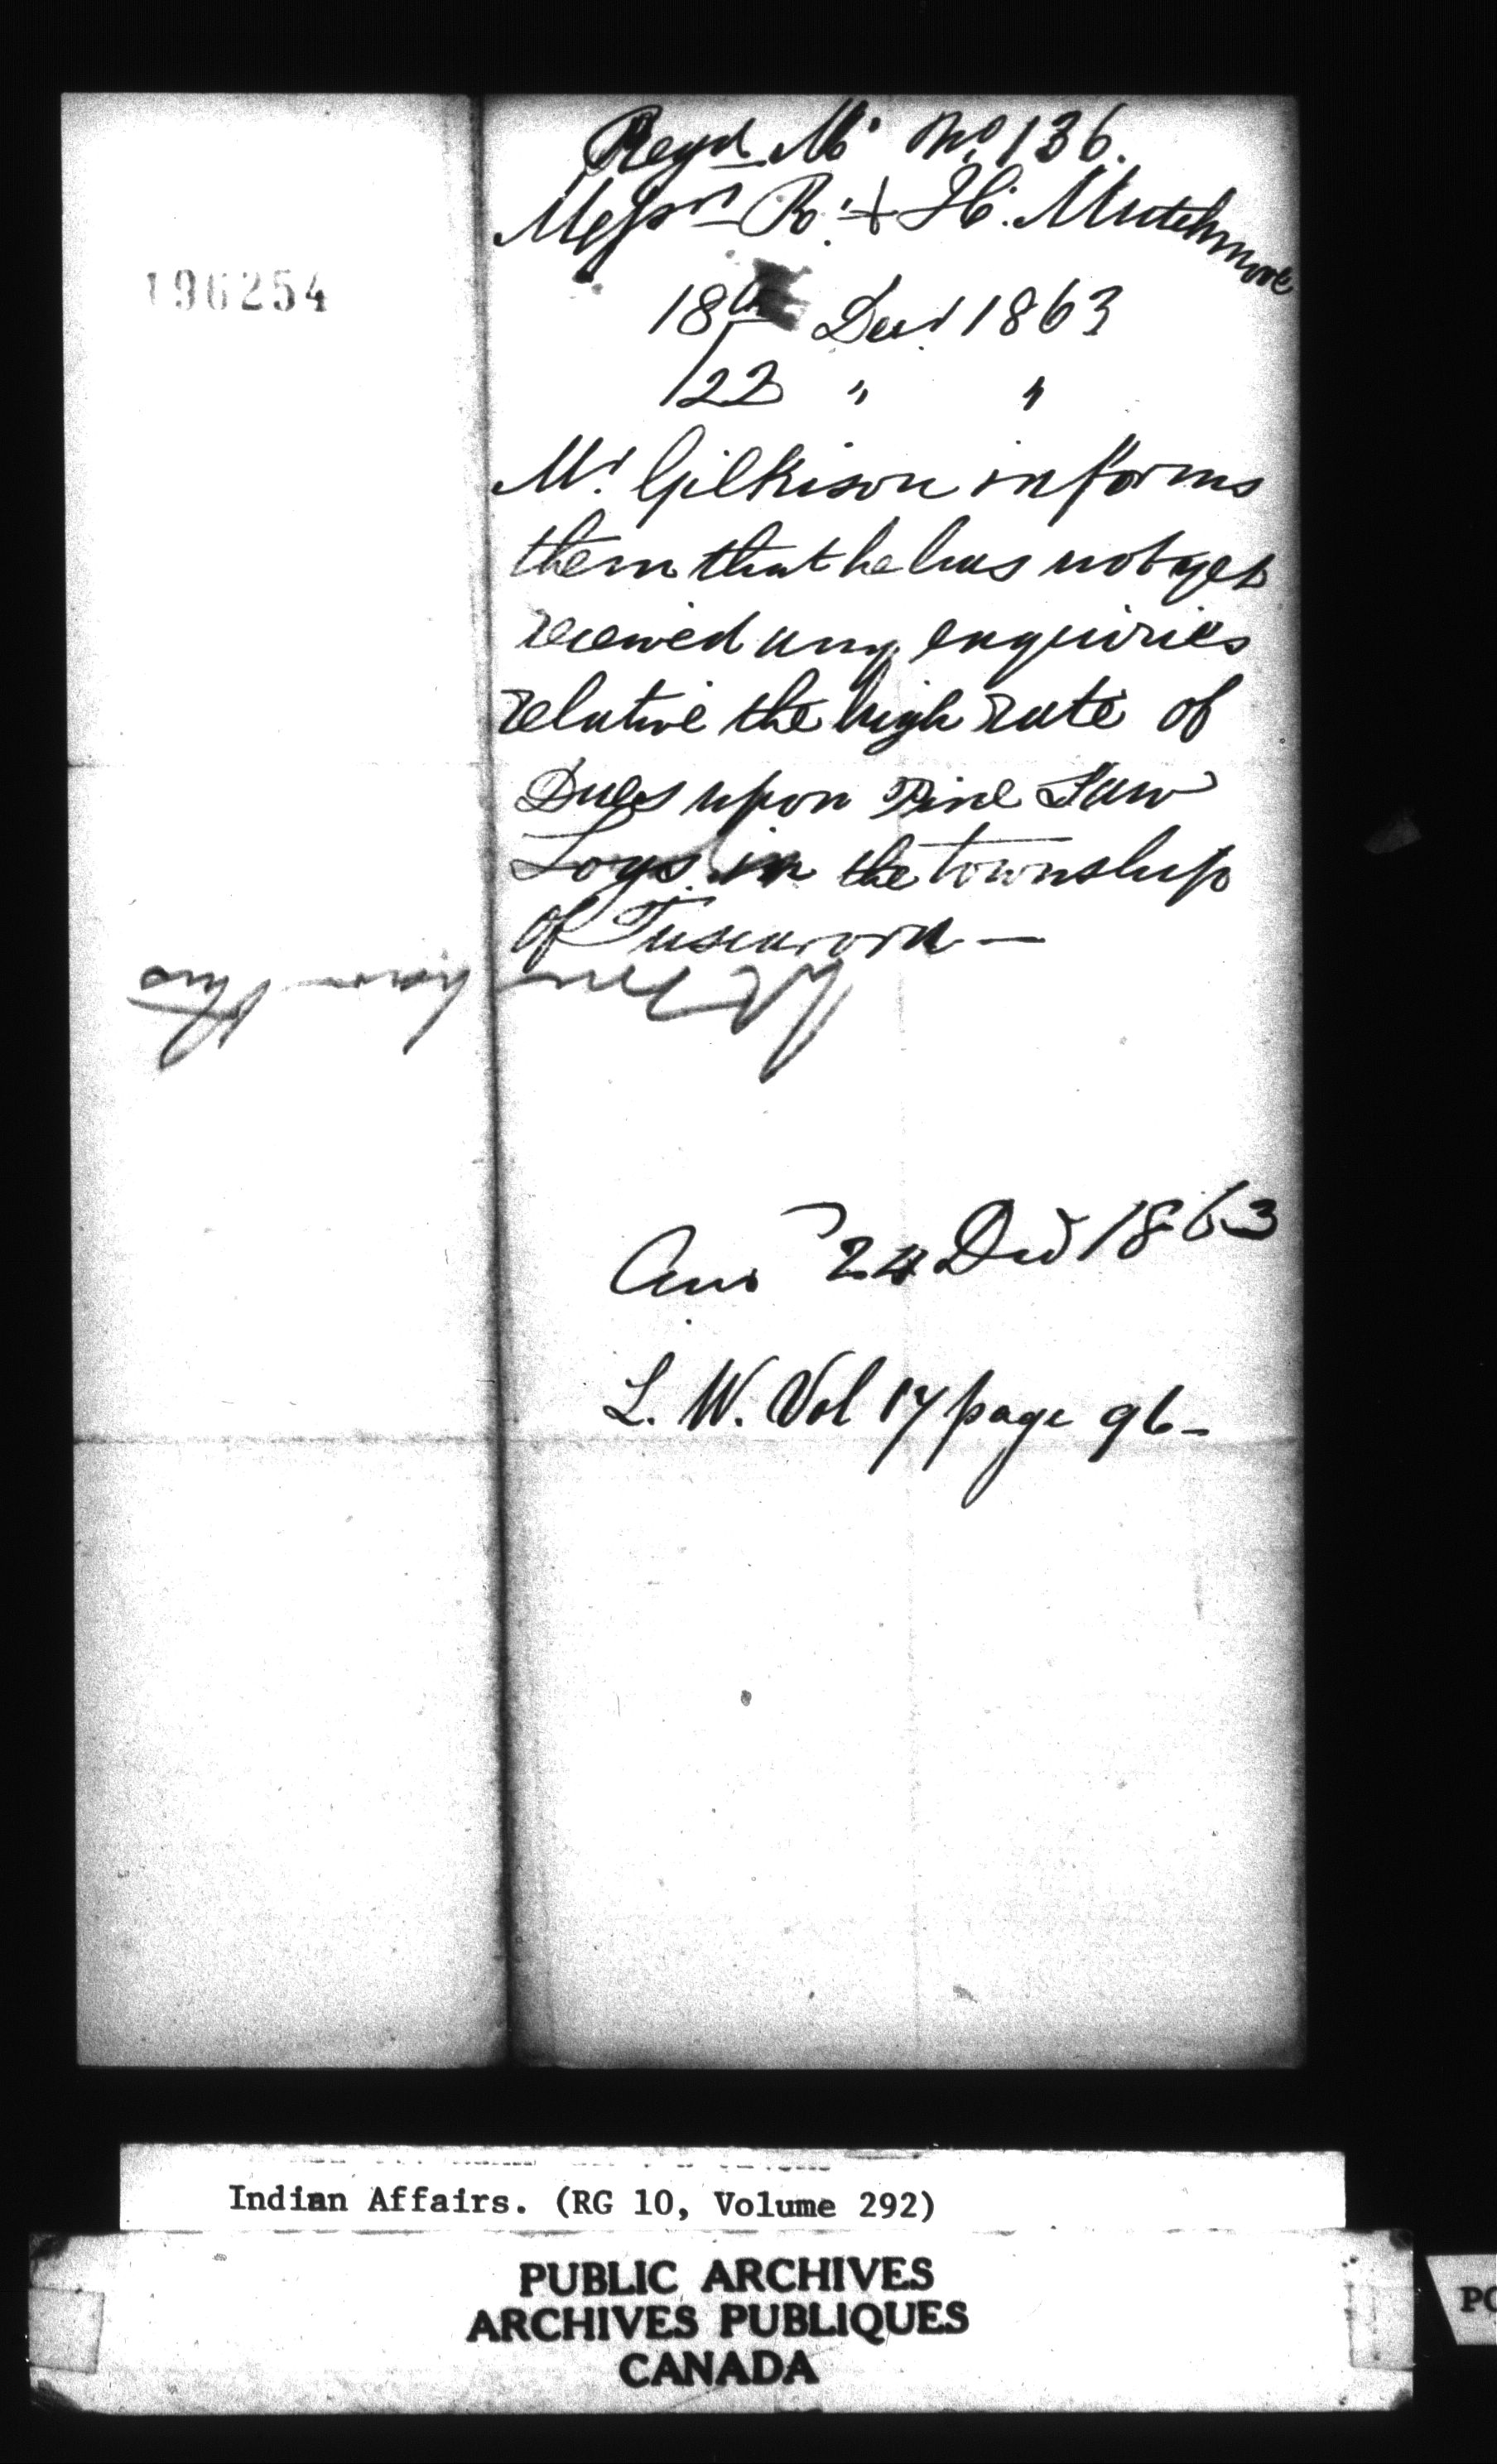 Regd M. No 136.
Messrs R. & H. Mutchmore
196254
18th Decr 1863
/22 " "
Mr. Gilkison informs
them that he has not yet
recieved any enquiries
relative the high rate of
Dues upon Pine Saw
Logs in the township
of Tuscarora —
Ans 24 Decr 1863
L. W. Vol 17 page 96 -
Indian Affairs. (RG 10, Volume 292)
PUBLIC ARCHIVES
ARCHIVES PUBLIQUES
CANADA